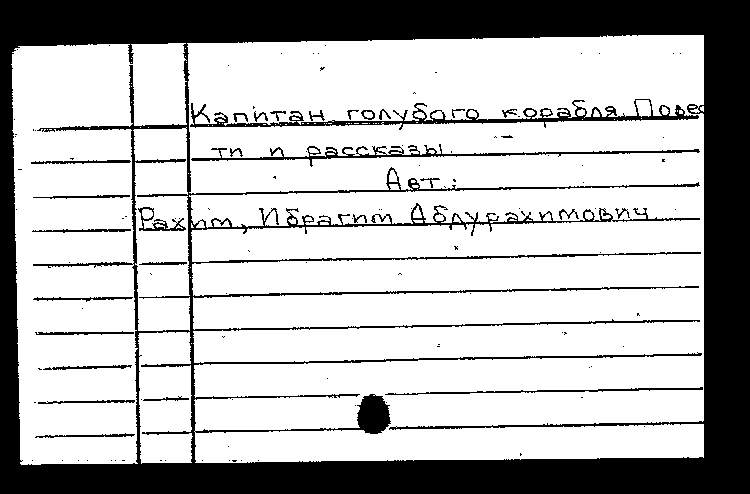 Капитан голубого корабля. Повес
ти и рассказы.
Авт.:
Рахим, Ибрагим Абдурахимович